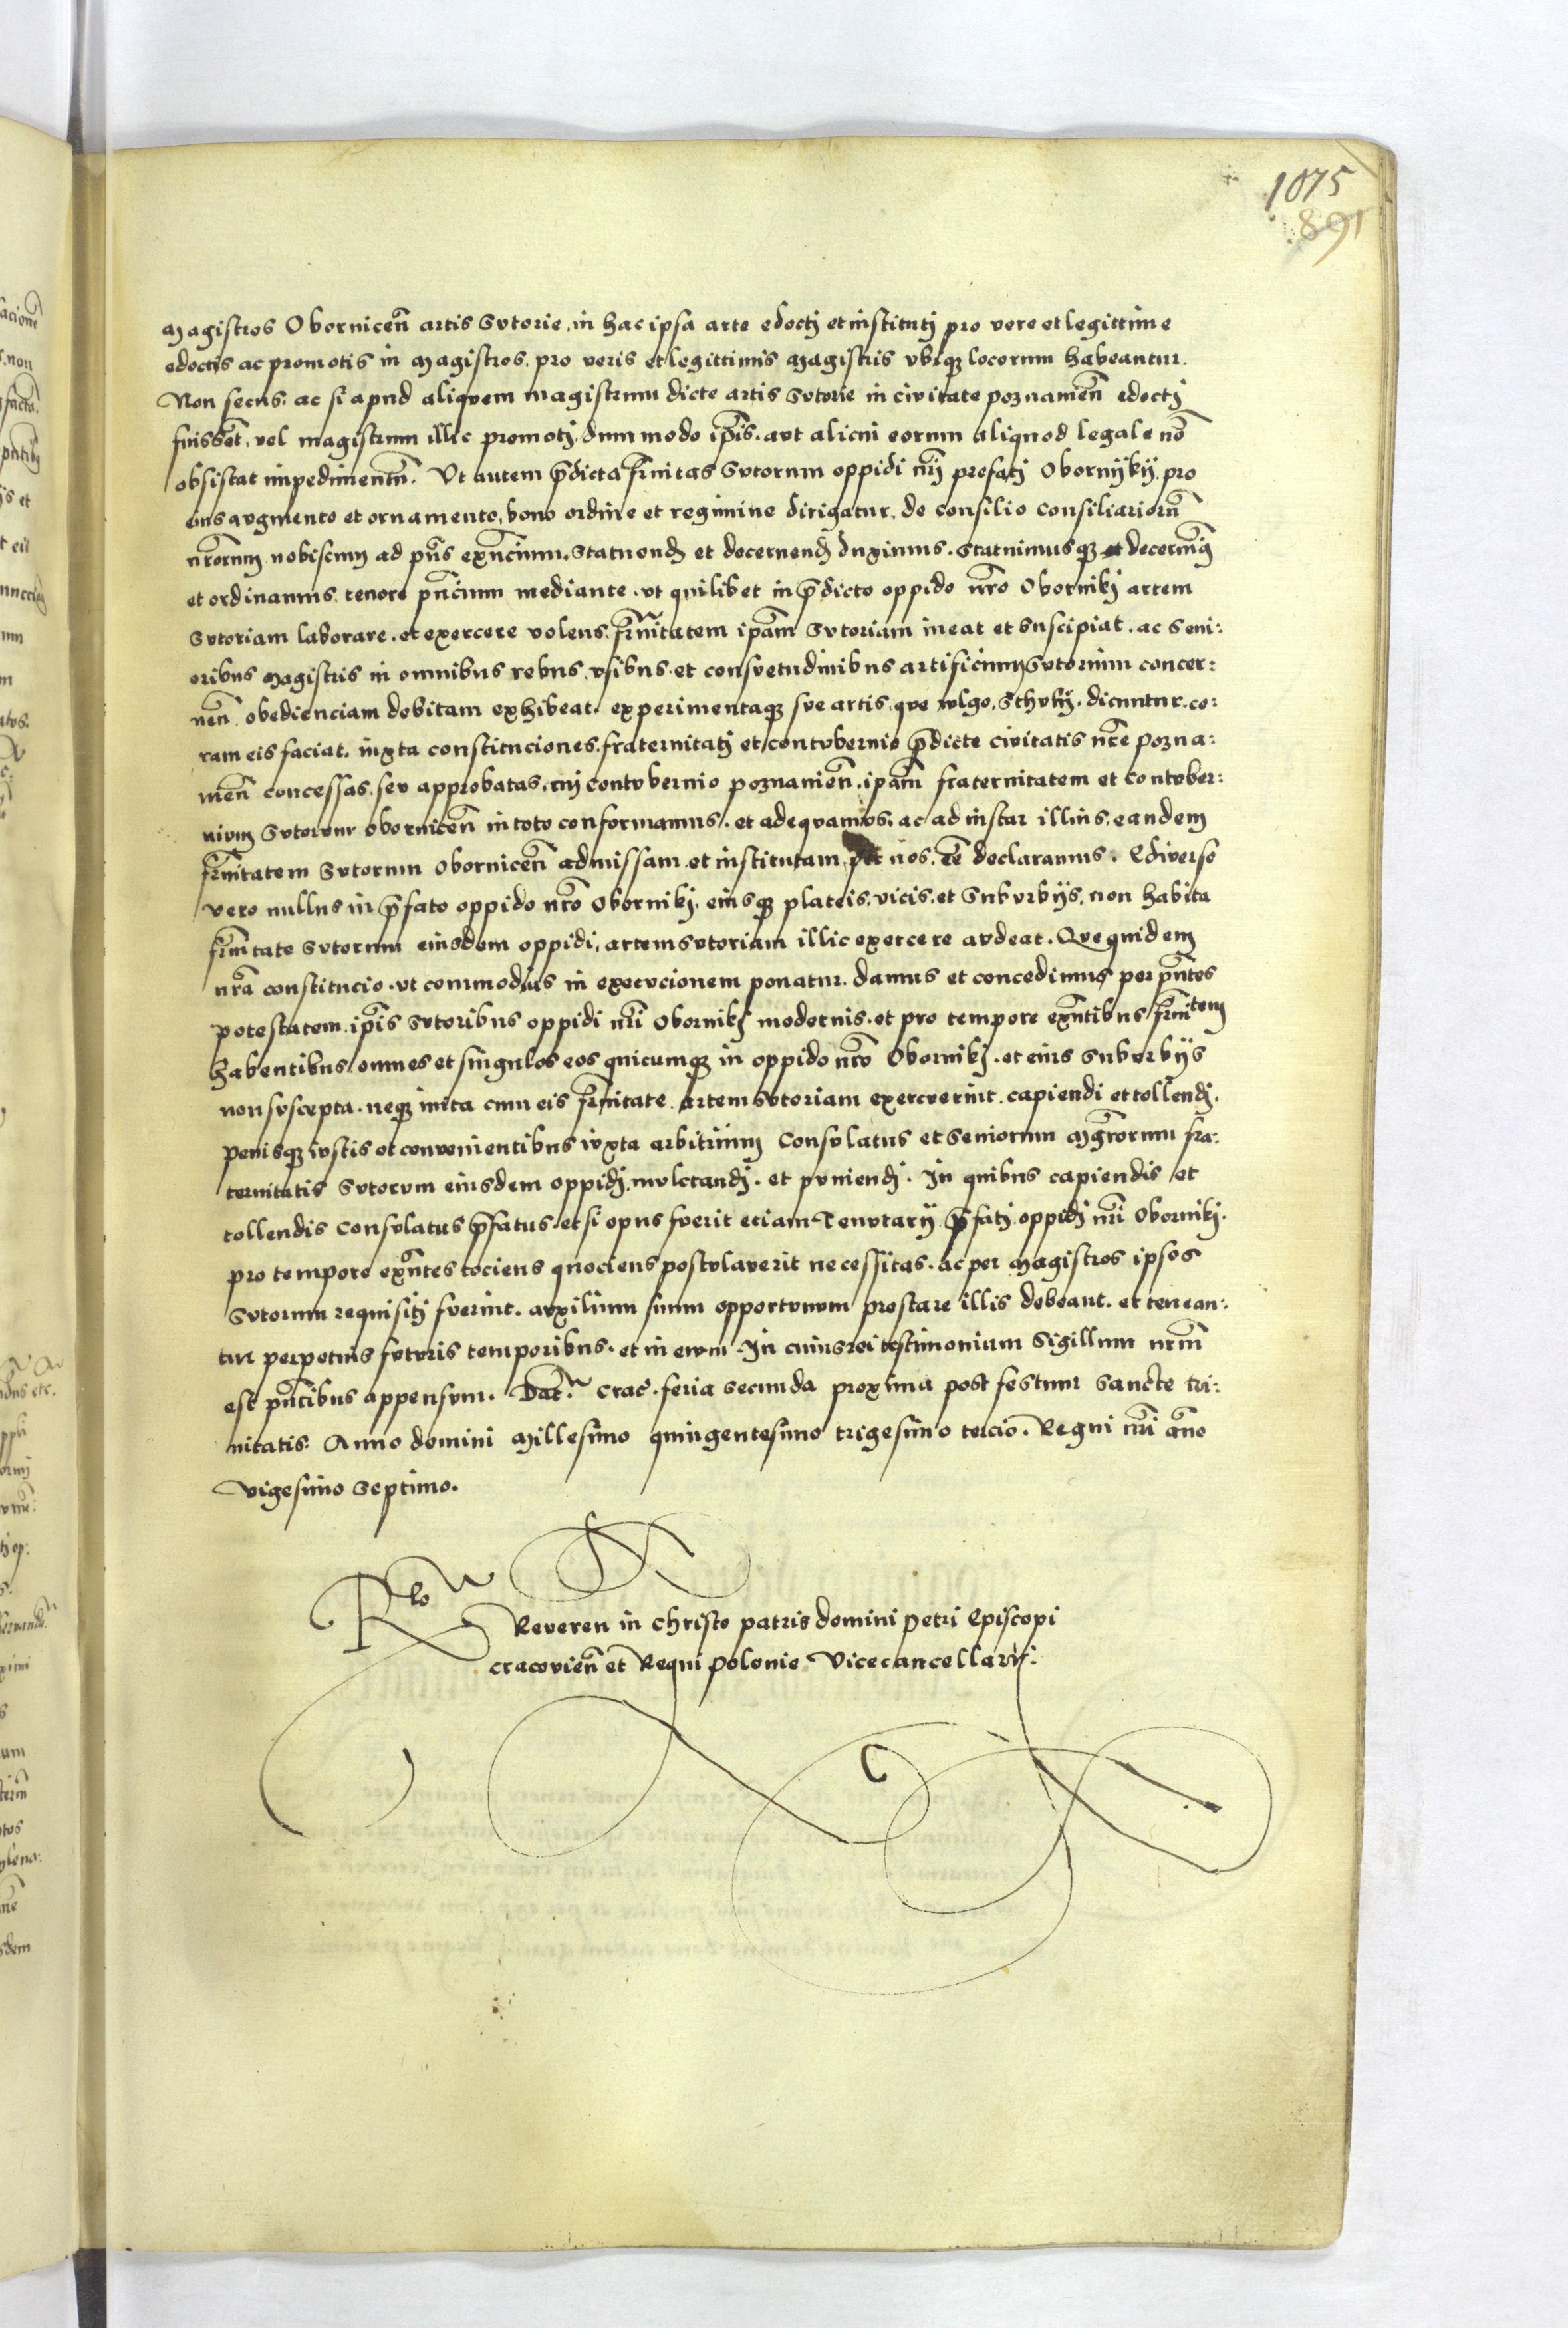 1075
891
Magistros Obornicen̄ artis Sutorie, in hac ipsa arte edoctj et institutj pro vere et legittime
edoctis ac promotis in Magistros, pro veris et legittimis Magistris vbiqȝ locorum habeantur.
Non secus. ac si apud aliquem magistrum dicte artis Sutorie in civitate poznanien̄ edoctj
fuissēt, vel magistrum illic promotj, dummodo ip̄is. aut alicui eorum aliquod legale nō
obsistat impedimentū. Vt autem p̄dicta fr̄nitas Sutorum oppidi nr̄j prefatj Obornijkij. pro
eius augmento et ornamento, bono ordine et regimine dirigatur. de consilio Consiliariorū
nr̄orum nobiscum ad pn̄s exn̄cium. Statuendj et decernendj duximus. Statuimusqȝ et decernimꝰ
et ordinamus. tenore pn̄cium mediante. vt quilibet in p̄dicto oppido nr̄o Obornikj artem
Sutoriam laborare. et exercere volens. fr̄nitatem ipām Sutoriam ineat et suscipiat. ac Seni:
oribus Magistris in omnibus rebus. vsibus. et consuetudinibus artificium Sutorium concer:
nen̄. obedienciam debitam exhibeat. experimentaqȝ sue artis, que vulgo, Sthukj. dicuntur. co:
ram eis faciat. iuxta constituciones. fraternitatj et contubernio p̄dicte civitatis nr̄e pozna:
nien̄ concessas. seu approbatas. cuj contubernio poznanien̄. ipām fraternitatem et contuber:
nium Sutorum obornicen̄ in toto conformamus. et adequamus. ac ad instar illius, eandem
fr̄nitatem Sutorum Obornicen̄ admissam et institutam per nos. eē declaramus. Ediverso
vero nullus in p̄fato oppido nr̄o Obornikj. eiusqȝ plateis. vicis. et Suburbijs, non habita
fr̄nitate Sutorum eiusdem oppidi, artem sutoriam illic exercere audeat. Que quidem
nr̄a constitucio. vt commodius in execucionem ponatur. damus et concedimus per pn̄tes
potestatem. ip̄is Sutoribus oppidi nr̄i Obornikj modernis. et pro tempore exn̄tibus fr̄nitem
habentibus, omnes et singulos eos quicumqȝ in oppido nr̄o Obornikj. et eius suburbijs
non suscepta. neqȝ inita cum eis fr̄nitate. artem Sutoriam exercuerint. capiendi et tollendj.
penisqȝ iustis et convenientibus iuxta arbitrium Consulatus et Seniorum Mgr̄orum fra:
ternitatis Sutorum eiusdem oppidj. mulctandj. et puniendj. In quibus capiendis et
tollendis Consulatus p̄fatus. et si opus fuerit eciam Tenutarij p̄fatj oppidj nr̄i Obornikj.
pro tempore exn̄tes tociens quociens postulaverit necessitas. ac per Magistros ipsos
Sutorum requisitj fuerint. auxilium suum opportunum prestare illis debeant. et tenean:
tur perpetuis futuris temporibus. et in evum. In cuius rei testimonium Sigillum nr̄m
est pn̄tibus appensum. Dat̄. Crac̄. feria secunda proxima post festum Sancte tri:
nitatis. Anno domini Millesimo quingentesimo trigesimo tercio. Regni nr̄i āno
vigesimo Septimo.
Rlo
Reveren in Christo patris domini Petri Episcopi
Cracovien̄ et Regni Polonie Vicecancellarij.